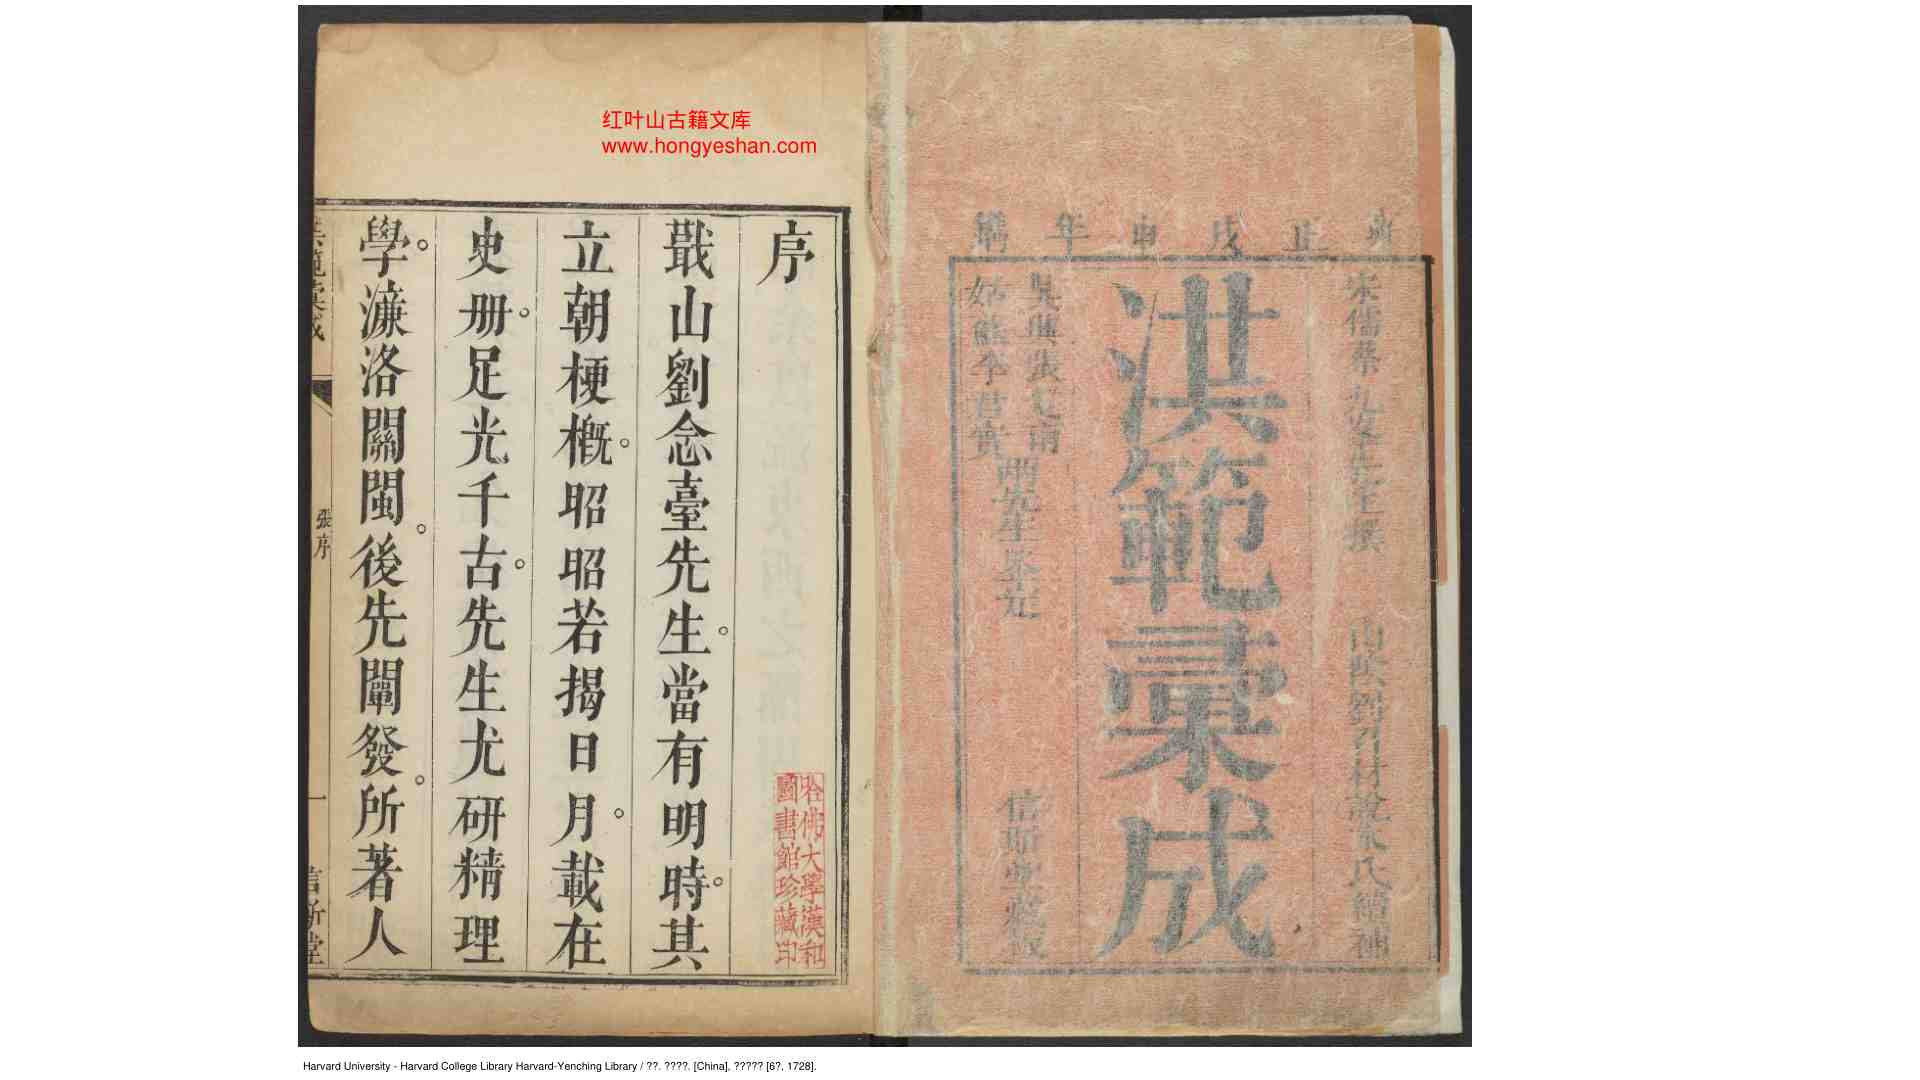 雍正戊申年鐫
宋儒蔡九峯先生撰 山陰劉君材說宋氏繪補
洪範彙成
吳興張艾南
姑蘇李君實
兩先生參定
信斯堂藏板
红叶山古籍文库
www.hongyeshan.com
序
戢山劉念臺先生。當有明時。其
立朝梗概。昭昭若揭日月。載在
史册。足光千古。先生尤研精理
學。濂洛關閩。後先闡發。所著人
洪範彙成
張序
一
信斯堂
哈佛大學漢和
圖書館珍藏印
Harvard University - Harvard College Library Harvard-Yenching Library / ??. ????. [China], ????? [6?, 1728].